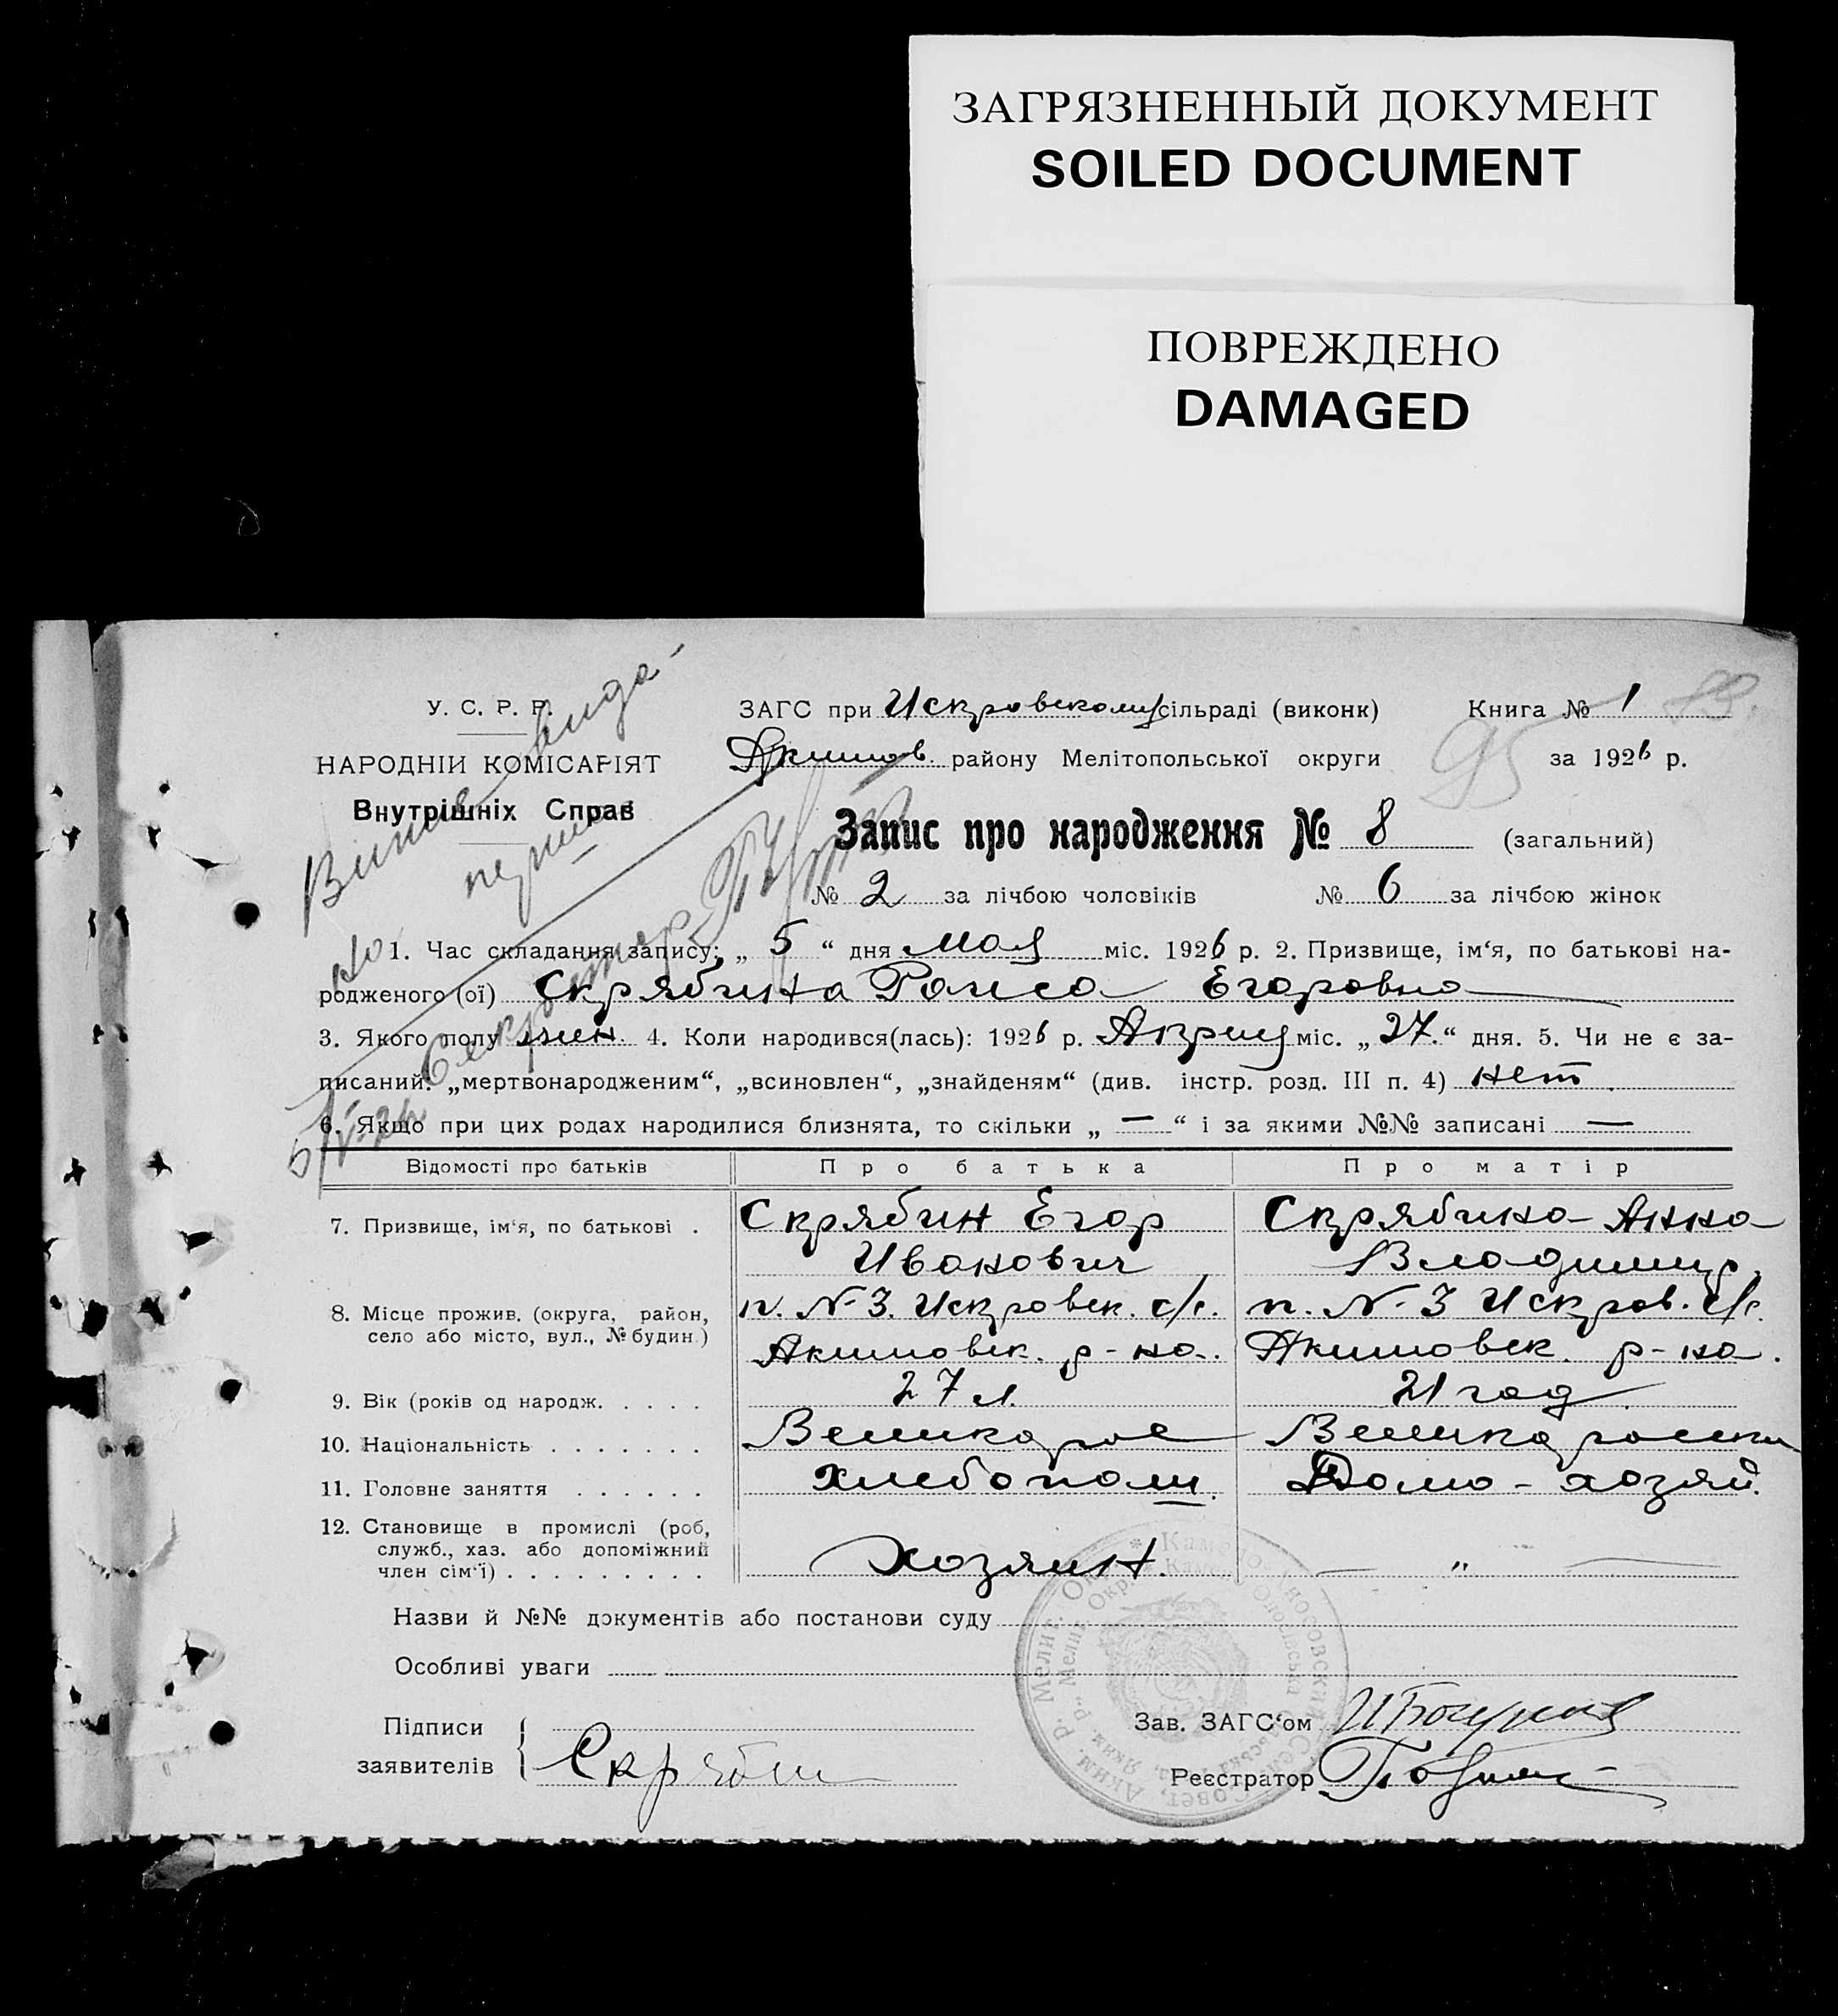 ЗАГРЯЗНЕННЫЙ ДОКУМЕНТ
SOILED DOCUMENT
ПОВРЕЖДЕНО
DAMAGED
У. С. Р. Р.
НАРОДНІЙ КОМІСАРІЯТ
Внутрішніх Справ
ЗАГС при Искровскому сільраді (виконк) Книга № 1
Акимов. району Мелітопольської округи за 1926 р.
95
Запис про народження № 8 (загальний)
№ 2 за лічбою чоловіків № 6 за лічбою жінок
1. Час складання запису: „ 5 “ дня Мая міс. 1926 р. 2. Призвище, ім‘я, по батькові на-
родженого (ої) Скрябина Раиса Егоровна
3. Якого полу жен. 4. Коли народився(лась): 1926 р. Апреля міс. „ 27. “ дня. 5. Чи не є за-
писаний: „мертвонародженим“, „всиновлен“, „знайденям“ (див. інстр. розд. III п. 4) нет.
6. Якщо при цих родах народилися близнята, то скільки „ — “ і за якими №№ записані —
Відомості про батьків Про батька Про матір
7. Призвище, ім‘я, по батькові . Скрябин Егор Скрябина Анна
Иванович Владимир.
8. Місце прожив. (округа, район, п. № 3. Искровск. с/с. п. № 3 Искров. с/с.
село або місто, вул., № будин.) Акимовск. р-на. Акимовск. р-на.
9. Вік (років од народж. . . . . 27 л. 21 год
10. Національність . . . . . . . Великорос Великоросска
11. Головне заняття . . . . . . Хлебопаш. Домо-хозяй.
12. Становище в промислі (роб,
служб., хаз. або допоміжний
член сім‘ї) . . . . . . . . . Хозяин. — „ —
Назви й №№ документів або постанови суду
Особливі уваги
Підписи
заявителів Скрябин
Зав. ЗАГС‘ом
Реєстратор